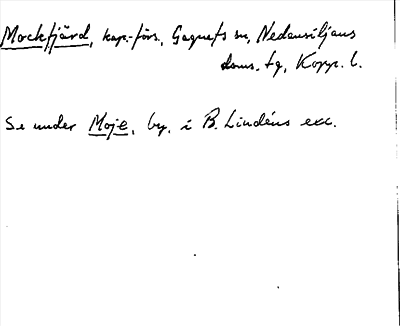 Mockfjärd, kap.-förs., Gagnefs sn, Nedansiljans
doms. tg, Kopp. l.
Se under Moje, by, i B. Lindéns exc.